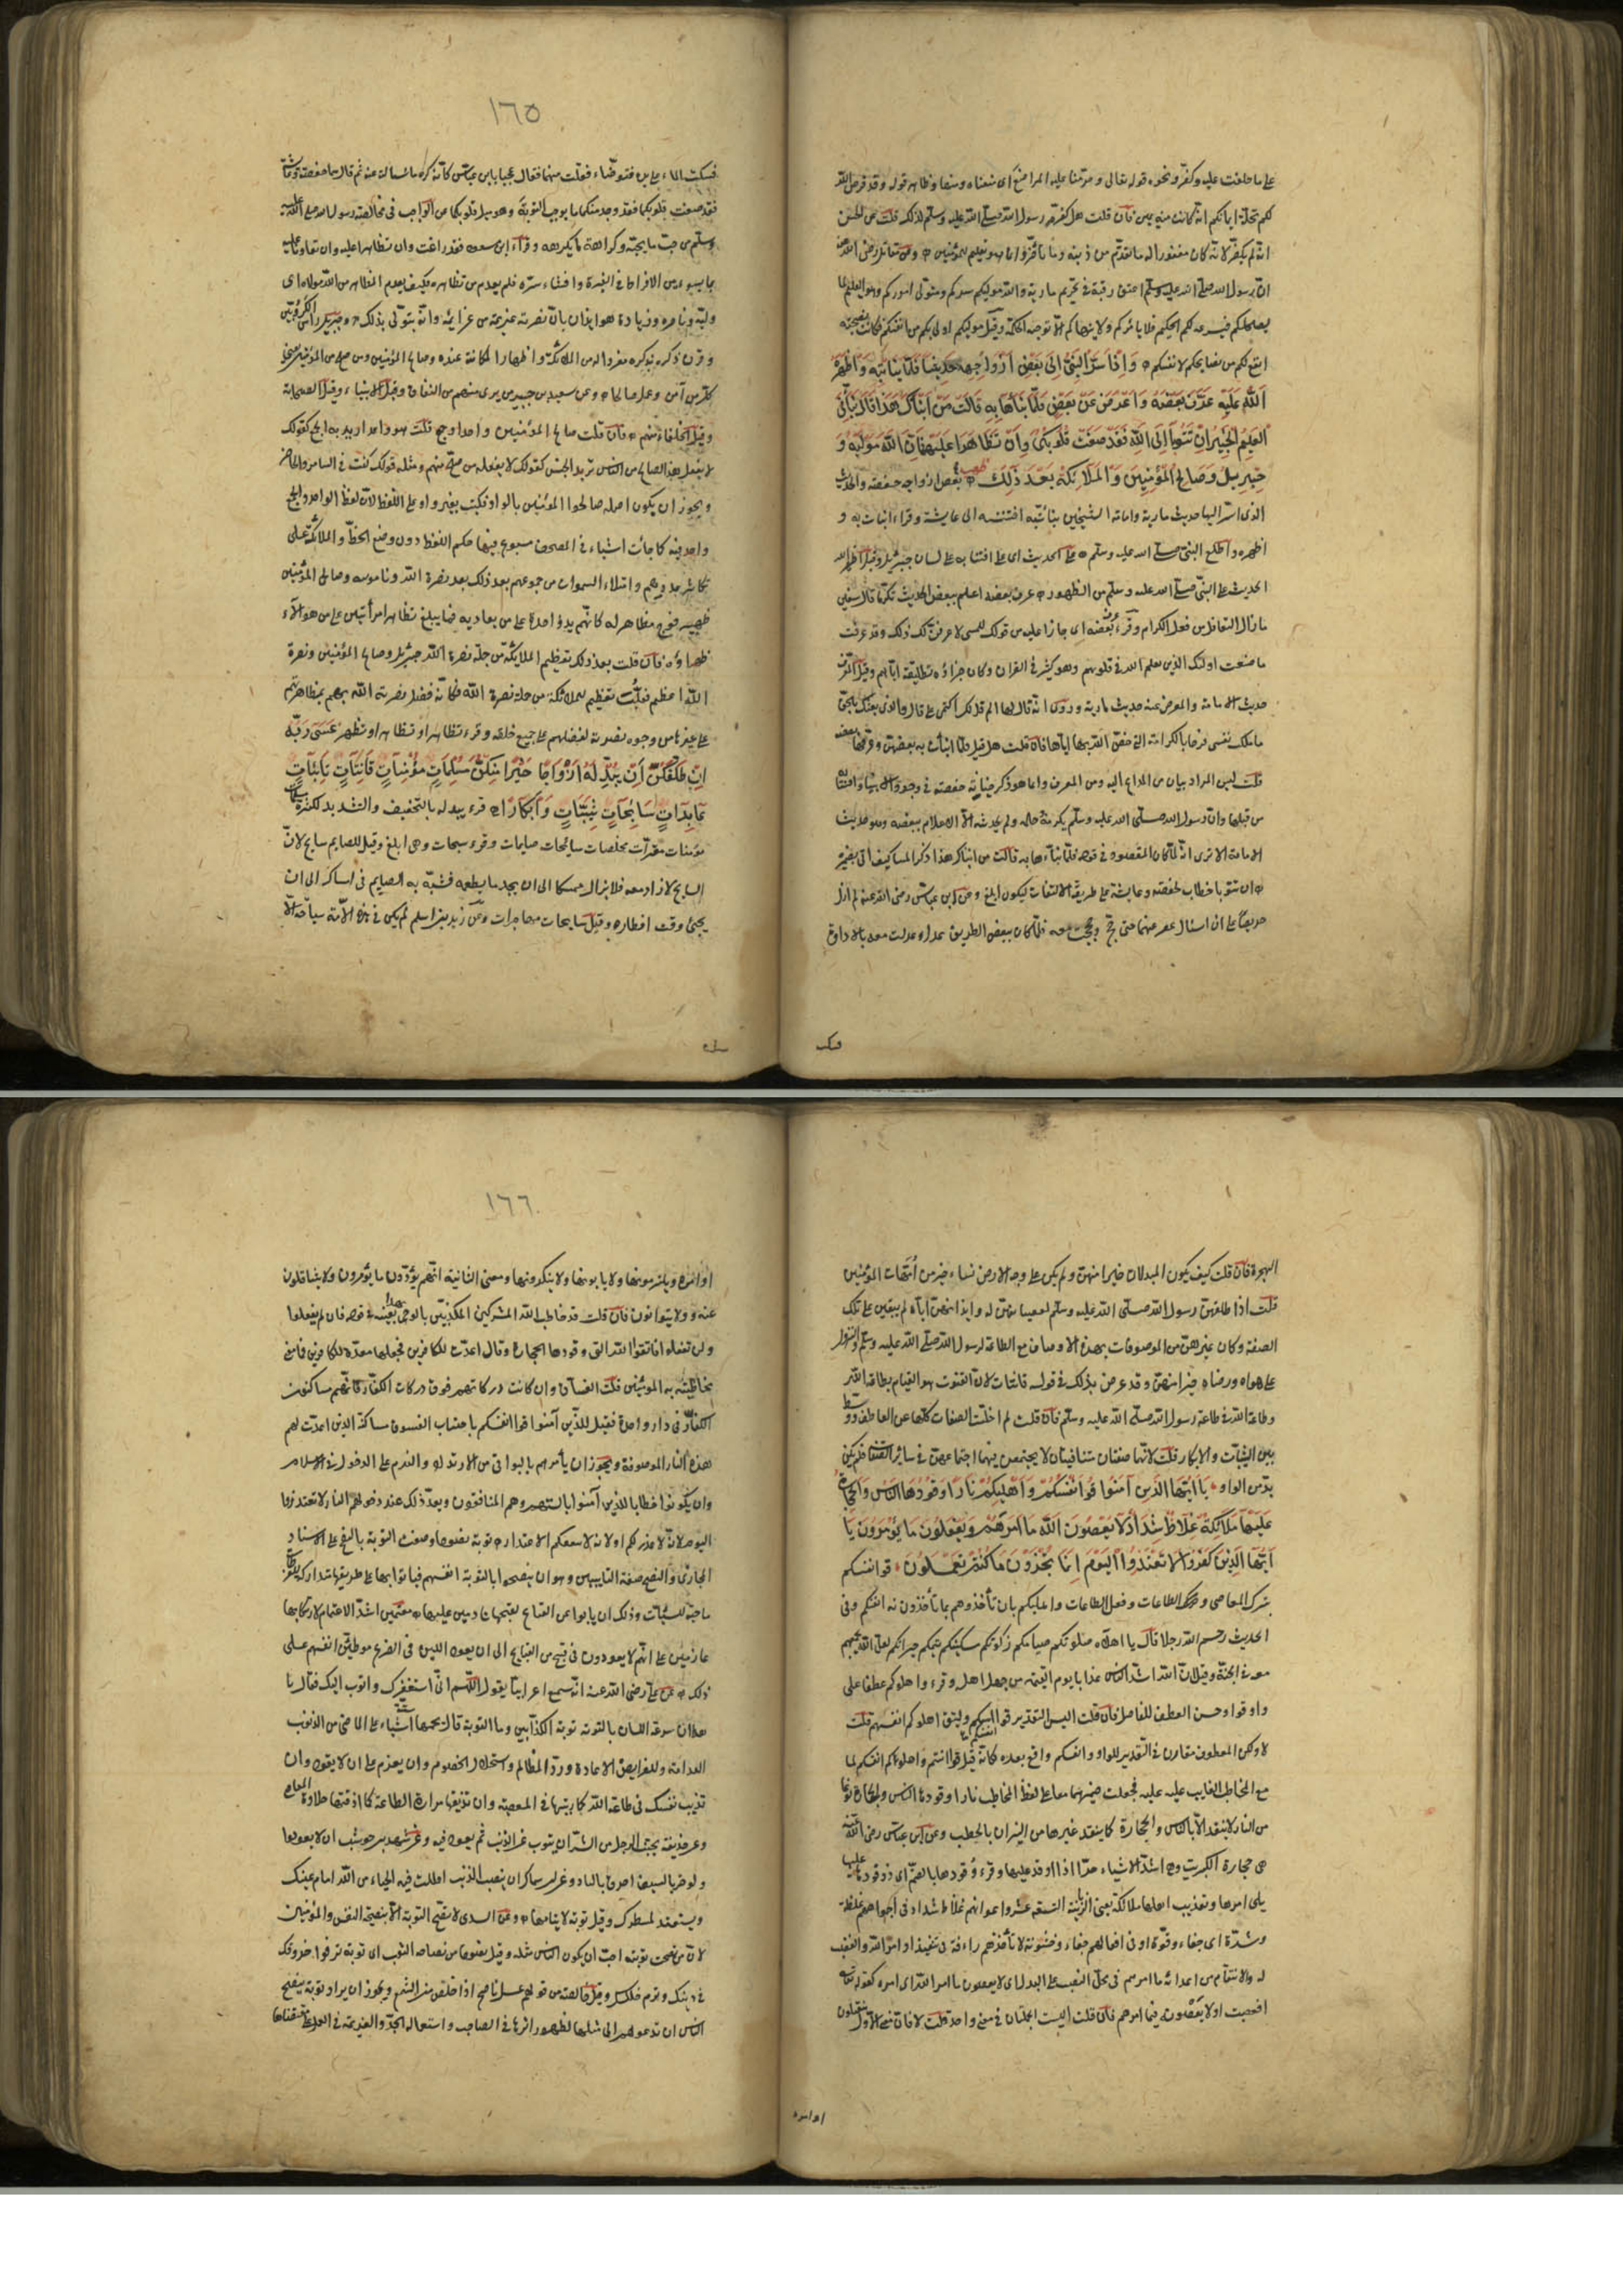 على ما حلفت عليه وكفر ونحوه قوله تعالى وحرمنا عليه المراضع أي منعناه ومنعا وظاهر قوله وقد فرض الله
لكم تحلة ايمانكم انه كانت منه يمين فان قلت هل كفر رسول الله صلى الله عليه وسلم لذلك قلت عن الحسن
انه لم يكفر لانه كان مغفورا له ما تقدم من ذنبه وما تأخر وانما هو تعليم للمؤمنين وعن مقاتل رضي الله عنه
ان رسول الله صلى الله عليه وسلم اعتق رقبة في تحريم مارية والله موليكم سيدكم ومتولى اموركم وهو العليم بما
يصلحكم فيشرعه لكم الحكيم فلا يأمركم ولا ينهاكم الا بما توجبه الحكمة وقيل موليكم اولى بكم من انفسكم فكانت نصيحته
انفع لكم من نصايحكم لانفسكم وَاِذَا سَرَّ النَّبِيُّ اِلَى بَعْضِ اَزْوَاجِهِ حَدِيثًا فَلَمَّا نَبَّأَتْ بِهِ وَاَظْهَرَهُ
اللّٰهُ عَلَيْهِ عَرَّفَ بَعْضَهُ وَاَعْرَضَ عَنْ بَعْضٍ فَلَمَّا نَبَّاَهَا بِهِ قَالَتْ مَنْ اَنْبَاَكَ هَذَا قَالَ نَبَّاَنِيَ
الْعَلِيمُ الْخَبِيرُ اِنْ تَتُوبَا اِلَى اللّٰهِ فَقَدْ صَغَتْ قُلُوبُكُمَا وَاِنْ تَظَاهَرَا عَلَيْهِ فَاِنَّ اللّٰهَ مَوْلَيهُ وَ
جِبْرِيلُ وَصَالِحُ الْمُؤْمِنِينَ وَالْمَلَائِكَةُ بَعْدَ ذَلِكَ ظهير بعض ازواجه حفصة والحديث
الذى اسر اليها حديث مارية وامامة الشيخين نبأت به افشته الى عايشة وقرء انبأت به و
اظهره واطلع النبي صلى الله عليه وسلم على الحديث اى على افشائه على لسان جبريل وقيل اظهر الله
الحديث على النبي صلى الله عليه وسلم من الظهور عرف بعضه اعلم ببعض الحديث تكرما قال سفين
ما زال التغافل من فعل الكرام وقرء عرف بعضه اى جازا عليه من قولك للمسي لاعرفن لك ذلك وقد عرفت
ما صنعت اولئك الذين يعلم الله ما في قلوبهم وهو كثير في القران وكان جزاؤه تطليقه اياها وقيل المعرف
حديث الامامة والمعرض عنه حديث مارية وروى انه قال لها الم اقل لك اكتمى على قال والذى بعثك بالحق
ما ملكت نفسى فرحا بالكرامة التي خص الله بها اباها فان قلت هلا قيل فلما نبأت به بعضهن وعرفها بعضه
قلت ليس المراد بيان من المذاع اليه ومن المعرف وانما هو ذكر جناية حفصة في وجود الانباء به وافشائه
من قبلها وان رسول الله صلى الله عليه وسلم بكرمه وحلمه ولم يوجد منه الا الاعلام ببعضه وهو حديث
الامامة الا ترى انه لما كان المقصود في قوله فلما نبأها به قالت من انباك هذا ذكر المنبأ كيف اتى بضميره
ان تتوبا خطاب لحفصة وعايشة على طريقة الالتفات ليكون ابلغ وعن ابن عباس رضي الله عنه لم ازل
حريصا على ان اسئال عمر عنهما حتى حج وحججت معه فلما كان ببعض الطريق عدل وعدلت معه بالاداوة
فسكب
١٦٥
فسكبت الماء على يده فتوضاء فقلت من هما فقال عجبا يا ابن عباس كانه كره ما سألته عنه ثم قال هما حفصة وعايشة
فقد صغت قلوبكما فقد وجد منكما ما يوجب التوبة وهو ميل قلوبكما عن الواجب في مخالصة رسول الله صلى الله عليه
وسلم من حب ما يحبه وكراهة ما يكرهه وقراء ابن مسعود فقد زاغت وان تظاهرا عليه وان تعاونا عليه
بما يسوءه من الافراط في الغيرة وافشاء سره فلم يعدم من تظاهره وكيف يعدم المظاهر من الله مولاه اى
وليه وناصره وزيادة هو ايذان بان نصرته عزيمة من عزايمه وانه يتولى بذلك وجبريل رأس الكروبيين
وقرن ذكره بذكره مفردا له من الملائكة واظهارا لمكانته عنده وصالح المؤمنين ومن صلح من المؤمنين يعنى
كل من آمن وعمل صالحا وعن سعيد بن جبير من برئ منهم من النفاق وقيل الانبياء وقيل الصحابة
وقيل الخلفاء منهم فان قلت صالح المؤمنين واحد او جمع قلت هو واحد اريد به الجمع كقولك
لا يفعل هذا الصالح من الناس تريد الجنس كقولك لا يفعله من صلح منهم ومثله قولك كنت في السامر والحاضر
ويجوز ان يكون اصله صالحوا المؤمنين بالواو فكتب بغير واو على اللفظ لان لفظ الواحد والجمع
واحد فيه كما جاءت اشياء في المصحف متبوع فيها حكم اللفظ دون وضع الخط والملائكة على
تكاثر عددهم وامتلاء السموات من جموعهم بعد ذلك بعد نصرة الله وناموسه وصالحى المؤمنين
ظهير فوج مظاهر له كانهم يد واحدة على من يعاديه فما يبلغ تظاهر امرأتين على من هؤلاء
ظهراؤه فان قلت بعد ذلك تعظيم للملائكة من جملة نصرة الله جبريل وصالح المؤمنين ونصرة
الله اعظم قلت تعظيم الملائكة من جملة نصرة الله فكانه فضل نصرته الله بهم بمظاهرتهم
على غيرها من وجوه نصرته لفضلهم على جميع خلقه وقرء تظاهرا وتتظاهرا وتظهرا عَسَى رَبُّهُ
اِنْ طَلَّقَكُنَّ اَنْ يُبْدِلَهُ اَزْوَاجًا خَيْرًا مِنْكُنَّ مُسْلِمَاتٍ مُؤْمِنَاتٍ قَانِتَاتٍ تَائِبَاتٍ
عَابِدَاتٍ سَائِحَاتٍ ثَيِّبَاتٍ وَاَبْكَارًا قرء يبدله بالتخفيف والتشديد للكثرة
مؤمنات مقرات مخلصات سائحات صايمات وقرء سيحات وهى ابلغ وقيل للصايم سايح لان
السايح لا زاد معه فلا يزال ممسكا الى ان يجد ما يطعمه فشبه به الصايم في امساكه الى ان
يجئ وقت افطاره وقيل سايحات مهاجرات وعن زيد بن اسلم لم يكن في هذه الامة سياحة الا
الهجرة فان قلت كيف يكون المبدلات خيرا منهن ولم يكن على وجه الارض نساء خير من امهات المؤمنين
قلت اذا طلقهن رسول الله صلى الله عليه وسلم لعصيانهن له وايذائهن اياه لم يبقين على تلك
الصفة وكان غيرهن من الموصوفات بهذه الاوصاف مع الطاعة لرسول الله صلى الله عليه وسلم والنزول
على هواه ورضاه خيرا منهن وقد عرض بذلك في قوله قانتات لان القنوت هو القيام بطاعة الله
وطاعة الله في طاعة رسول الله صلى الله عليه وسلم فان قلت لم اخلت الصفات كلها عن العاطف ووسط
بين الثيبات والابكار قلت لانهما صفتان متنافيتان لا يجتمعن فيهما اجتماعهن في سائر الصفات فلم يكن
بد من الواو يَا اَيُّهَا الَّذِينَ آمَنُوا قُوا اَنْفُسَكُمْ وَاَهْلِيكُمْ نَارًا وَقُودُهَا النَّاسُ وَالْحِجَارَةُ
عَلَيْهَا مَلَائِكَةٌ غِلَاظٌ شِدَادٌ لَا يَعْصُونَ اللّٰهَ مَا اَمَرَهُمْ وَيَفْعَلُونَ مَا يُؤْمَرُونَ يَا
اَيُّهَا الَّذِينَ كَفَرُوا لَا تَعْتَذِرُوا الْيَوْمَ اِنَّمَا تُجْزَوْنَ مَا كُنْتُمْ تَعْمَلُونَ قوا انفسكم
بترك المعاصى وفعل الطاعات واهليكم بان تأخذوهم بما تأخذون به انفسكم وفى
الحديث رحم الله رجلا قال يا اهلاه صلوتكم صيامكم زكوتكم مسكينكم يتيمكم جيرانكم لعل الله يجمعهم
معه في الجنة وقيل ان اشد الناس عذابا يوم القيمة من جهل اهله وقرء واهلوكم عطفا على
واو قوا وحسن العطف للفاصل فان قلت اليس التقدير قوا انفسكم وليق اهلوكم انفسهم قلت
لا ولكن المعطوف مقارن في التقدير للواو وانفسكم واقع بعده كانه قيل قوا انتم واهلوكم انفسكم لما
مع المخاطب الغايب عليه فجعلت ضميرهما معا على لفظ المخاطب نارا وقودها الناس والحجارة نوعا
من النار لا يتقد الا بالناس والحجارة كما يتقد غيرها من النيران بالحطب وعن ابن عباس رضي الله عنه
هى حجارة الكبريت وهى اشد الاشياء حرا اذا اوقد عليها وقرء وقودها بالضم اى ذو وقودها عليها
يلى امرها وتعذيب اهلها ملائكة يعنى الزبانية التسعة عشر واعوانهم غلاظ شداد في اجرامهم غلظة
وشدة اى جفاء وقوة او في افعالهم جفاء وخشونة لا تأخذهم رأفة في تنفيذ اوامر الله والغضب
له والانتقام من اعدائه ما امرهم في محل النصب على البدل اى لا يعصون ما امر الله اى امره كقوله تعالى
افعصيت امرى او لا يعصونه فيما امرهم فان قلت اليست الجملتان في معنى واحد قلت لا فان معنى الاول يتقبلون
اوامره
١٦٦
اوامره ويلتزمونها ولا يأبونها ولا ينكرونها ومعنى الثانية انهم يؤدون ما يؤمرون ولا يتثاقلون
عنه ولا يتوانون فان قلت قد خاطب الله المشركين المكذبين بالوحى بهذا بعينه في قوله فان لم تفعلوا
ولن تفعلوا فاتقوا النار التى وقودها الحجارة وقال اعدت للكافرين فجعلها معدة للكافرين فما معنى
مخاطبته به المؤمنين قلت الفساق وان كانت دركاتهم فوق دركات الكفار فانهم مساكنون
الكفار في دار واحدة فقيل للذين آمنوا قوا انفسكم باجتناب الفسوق مساكنة الذين اعدت لهم
هذه النار الموصوفة ويجوز ان يأمرهم بالتوقى من الارتداد والندم على الدخول في الاسلام
وان يكون خطابا للذين آمنوا بالسنتهم وهم المنافقون وبعد ذلك عند دخولهم النار لا تعتذروا
اليوم لانه لا عذر لكم او لانه لا ينفعكم الاعتذار توبة نصوحا وصفت التوبة بالنصح على الاسناد
المجازى والنصح صفة التايبين وهو ان ينصحوا بالتوبة انفسهم فيأتوا بها على طريقها متداركة للفرطات
ماحية للسيئات وذلك ان يتوبوا عن القبائح لقبحها نادمين عليها مغتمين اشد الاغتمام لارتكابها
عازمين على انهم لا يعودون في قبيح من القبايح الى ان يعود اللبن في الضرع موطنين انفسهم على
ذلك عن على رضي الله عنه انه سمع اعرابيا يقول اللهم انى استغفرك واتوب اليك فقال يا
هذا ان سرعة اللسان بالتوبة توبة الكذابين وما التوبة قال يجمعها ستة اشياء على الماضى من الذنوب
الندامة وللفرايض الاعادة ورد المظالم واستحلال الخصوم وان يعزم على ان لا يعود وان
تذيب نفسك في طاعة الله كما ربيتها في المعصية وان تذيقها مرارة الطاعة كما اذقتها حلاوة المعاصى
وعن حذيفة بحسب الرجل من الشر ان يتوب عن الذنب ثم يعود فيه وعن شهر بن حوشب ان لا يعود
ولو حز بالسيف واحرق بالنار وعن ابن سماك ان تنصب الذنب الذى اقللت فيه الحياء من الله امام عينك
ويستعد لمنتظرك وقيل توبة لا يتاب منها وعن السدى لا تصح التوبة الا بنصيحة النفس والمؤمنين
لان من نصحت توبته احب ان يكون الناس مثله وقيل نصوحا من نصاحة الثوب اى توبة ترفوا خروقك
في دينك وترم خللك وقيل خالصة من قولهم عسل ناصح اذا خلص من الشمع ويجوز ان يراد توبة تنصح
الناس ان تدعوهم الى مثلها لظهور اثرها في صاحبها واستعماله الجد والعزيمة في العمل على مقتضاها